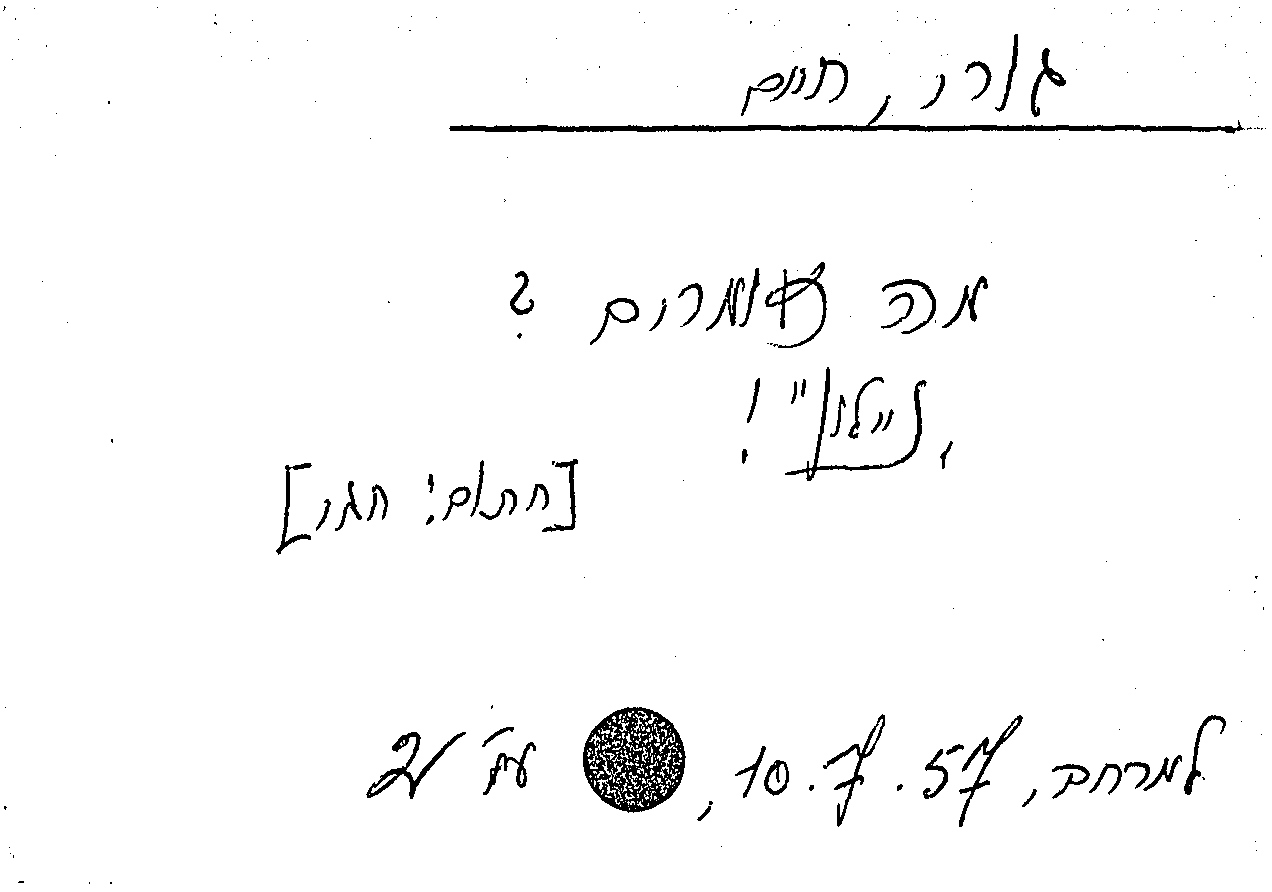 גורי, חיים
מה אומרים ?
"ניילון" !
[חתום: חגי]
למרחב, 10.7.57, עמ' 2